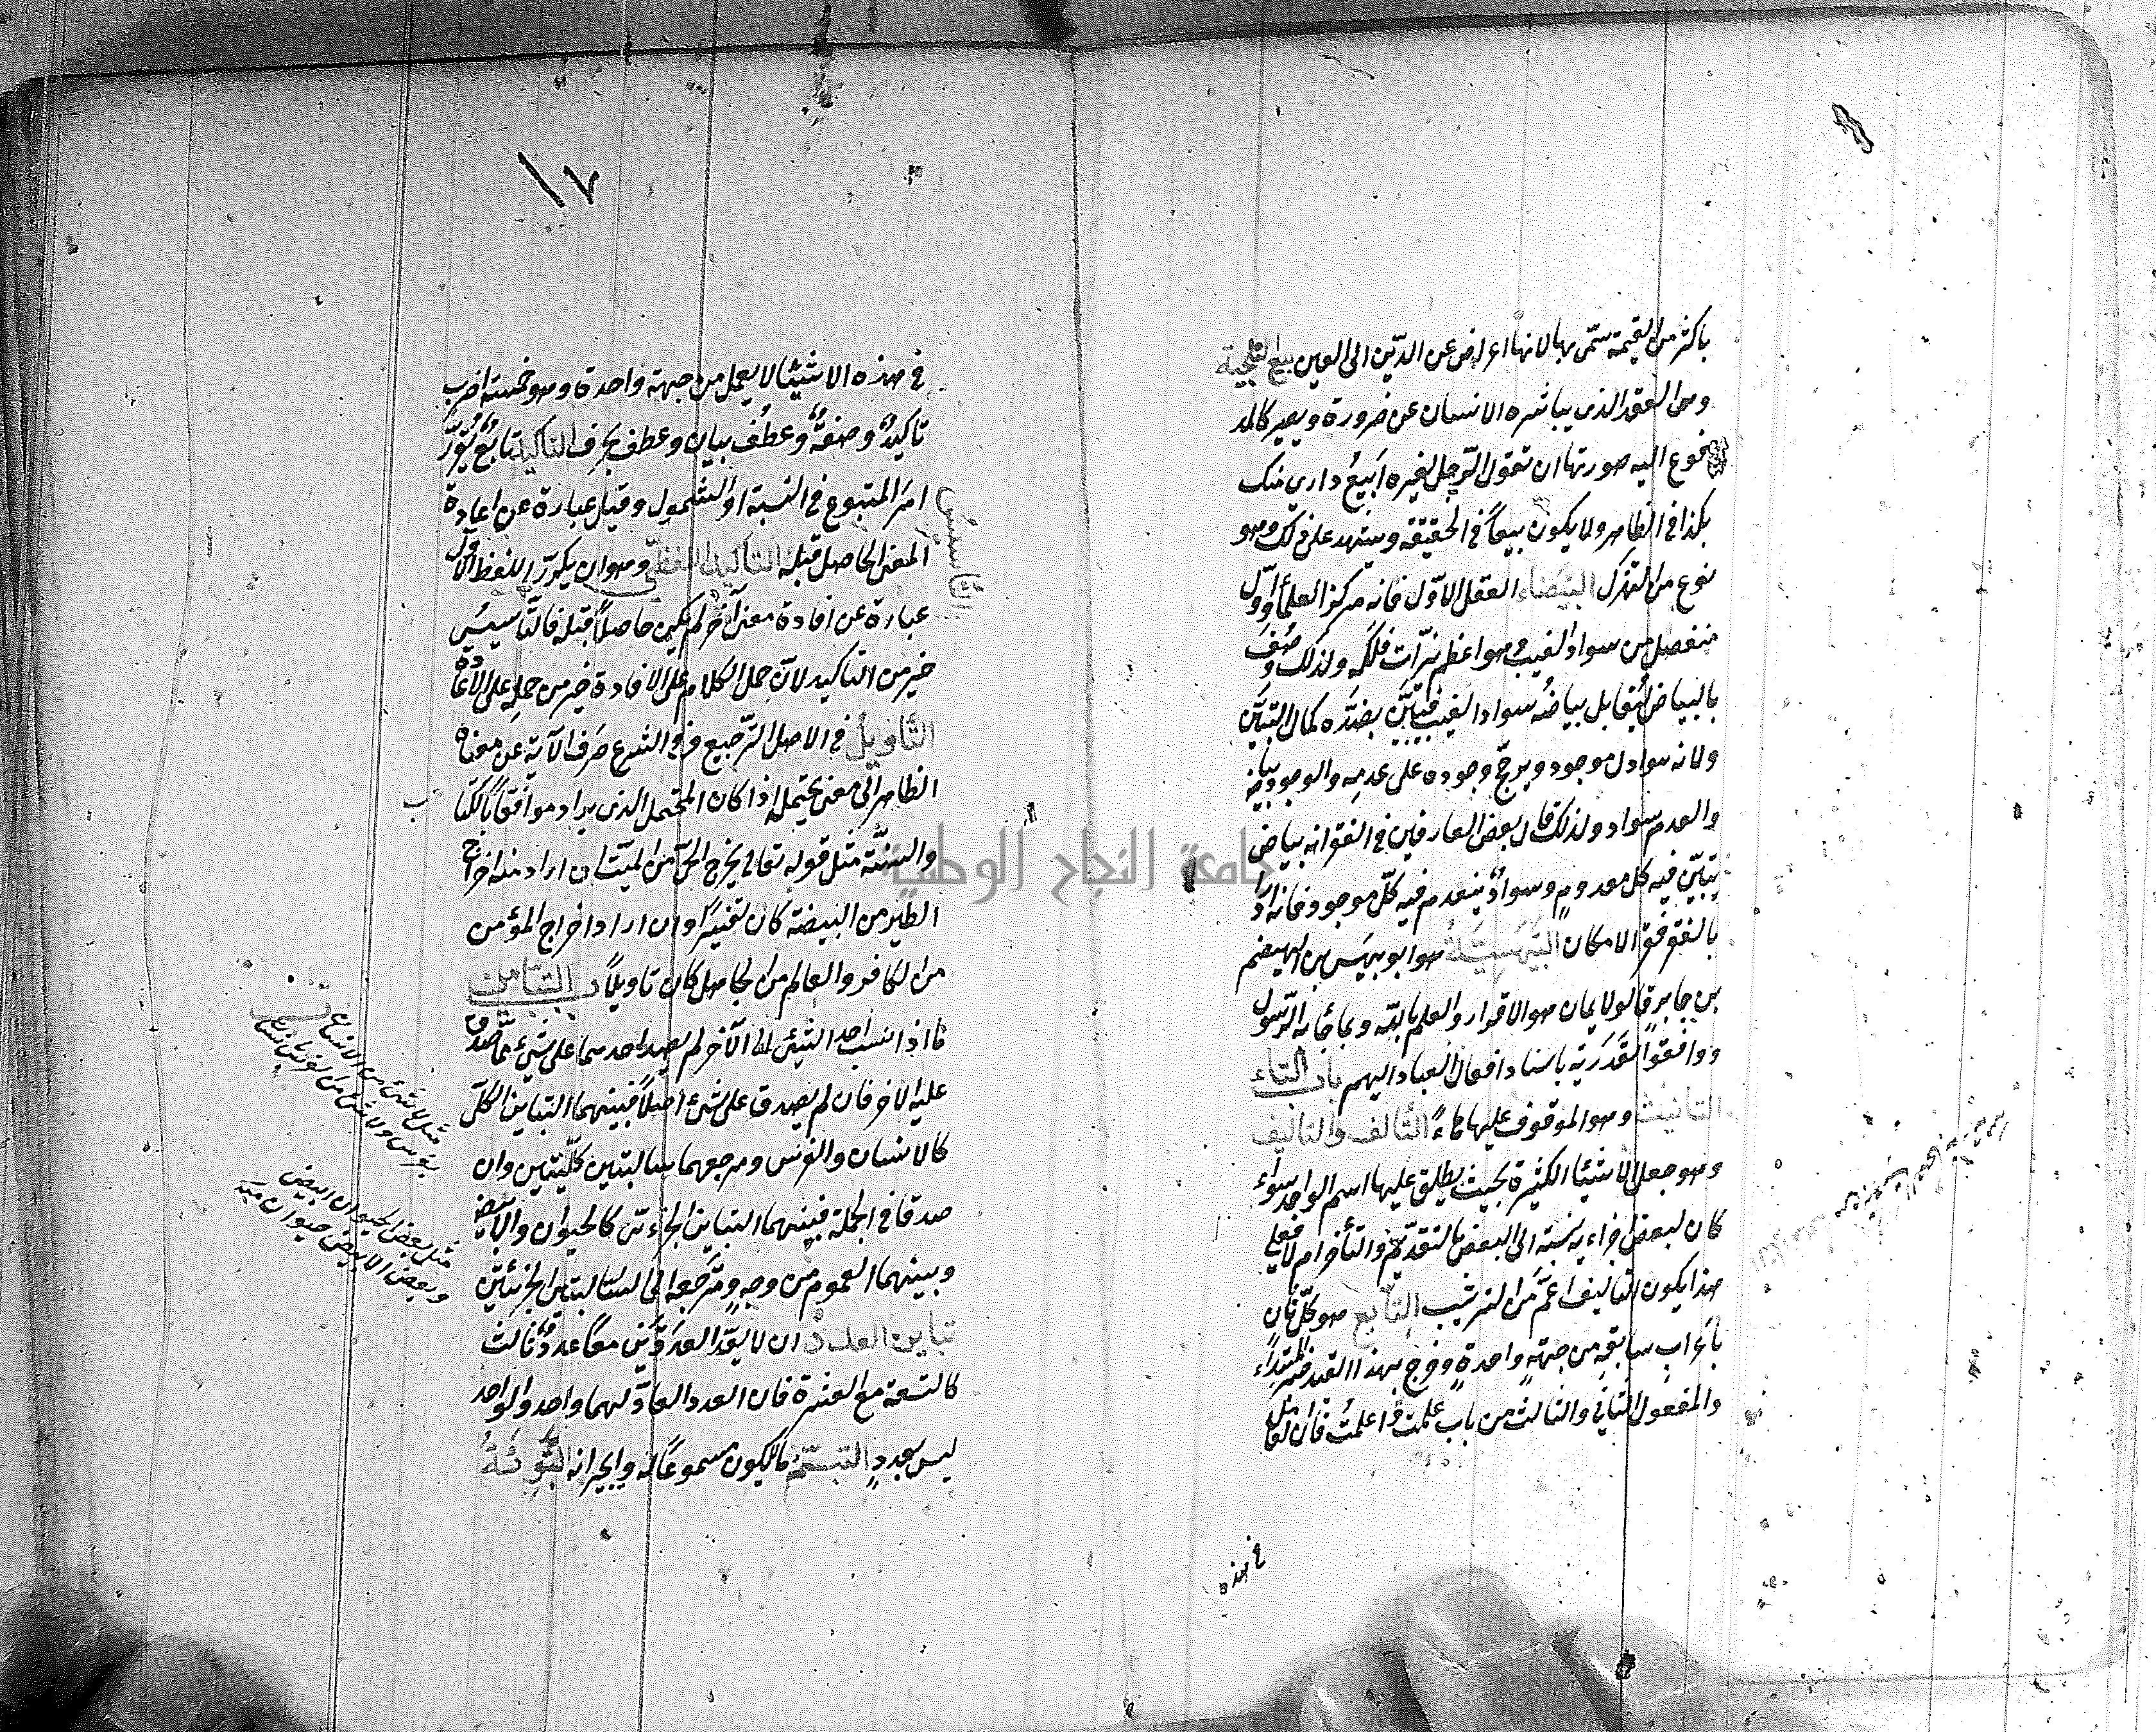 باكثر من القيمة سمى بها لانها اعراض عن الدّين الى العين بيع التلجية
وهى العقد الذى يباشره الانسان عن ضرورة ويصير كالمد
فوع اليه صورتها ان تقول الرّجل لغيره ابيعُ دارى منك
بكذا فى الظاهر ولا يكون بيعاً فى الحقيقة ويشهد على ذلك وهو
نوع من الهزل البيضاء العقل الاوّل فانه مركز العلماء واوّل
منفصل من سواد الغيب وهو اعظم نيّرات فلكه ولذلك وُصف
بالبياض ليقابل بياضُه سواد الغيب فيتبيَّن بضدّه كمال التبيَّن
ولانه هو اول موجود ويرجّح وجوده على عدمه والوجود بياض
والعدم سواد ولذلك قال بعض العارفين فى الفقر انه بياض
يتبيّن فيه كل معدوم وسوادٌ ينعدم فيه كلّ موجود فانه اراد
بالفقر فقر الامكان البَيْهَسيّةُ هو ابو بيهَس بن الهيصم
بن جابر قالوا الايمان هو الاقرار والعلم بالله وبما جاء به الرّسول
ووافقوا القَدَريّة باسناد افعال العباد اليهم باب التاء
التانيث وهو الموقوف عليها هاءً التّالف والتاليف
وهو جعل الاشيئا الكثيرة بحيث يطلق عليها اسم الواحد سواء
كان لبعض اجزاءيه نسبة الى البعض بالتقديم والتأخر ام لا فعلى
هذا يكون التاليف اعمَّ من الترتيب التّابع هو كلّ ثان
باعراب سابقه من جهةٍ واحدةٍ وخرج بهذا القيد خبر المبتداء
والمفعول الثانى والثالث من باب علمت واعلمتُ فان العامل
فى هذه
١٧
فى هذه الاشيئا لا يعمل من جهة واحدة وهو خمسة اضرب
تاكيدٌ وصفةٌ وعطفُ بيان وعطف بحرف التاكيد تابعٌ يُقَرِّرُ
امرَ المتبوع فى النسبة او الشمول وقيل عبارة عن اعادة
المعنى الحاصل قبله التاكيد اللفظى وهو ان يكرّر اللفظ الاول
التاسيس
عبارة عن افادة معنى آخر لم يكن حاصلاً قبله فالتّاسيسُ
خير من التاكيد لانّ حمل الكلام على الافادة خير من حمله على الاعادة
التّاويلُ فى الاصل الترجيع وفى الشرع صَرف الآية عن معناه
الظاهر الى معنى يحتمله اذا كان المحتمل الذى يراد موافقاً بالكتا
ب
والسنّة مثل قوله تعالى يخرج الحىّ من الميّت ان اراد منه اخراج
الطير من البيضة كان تفسيرًا وان اراد اخراج المؤمن
من الكافر والعالم من الجاهل كان تاويلاً التباين
ما اذا نسب احد الشيئى الى الآخر لم يصدق احدهما على شيئ مما صدق
عليه الاخر فان لم يصدق على شئ اصلاً فبينهما التباين الكلّى
كالانسان والفرس ومرجعهما سالبتين كلّيتين وان
صدقا فى الجملة فبينهما التباين الجزءىّ كالحيوان والابيض
وبينهما العموم من وجهٍ ومرجعه الى السالبتين الجزئيتين
تباين العدد ان لا يعدّ العدَدَين معًا عددٌ ثالث
كالتسعة مع العشرة فان العدد العادّ لهما واحد والواحد
ليس بعددٍ التبسّم مالايكون مسموعًا له ولجيرانه التّبوئةُ
مثل لا شئ من الانسان
بفرس ولا شئ من الفرس بانسان
مثل بعض الحيوان ابيض
وبعض الابيض حيوان